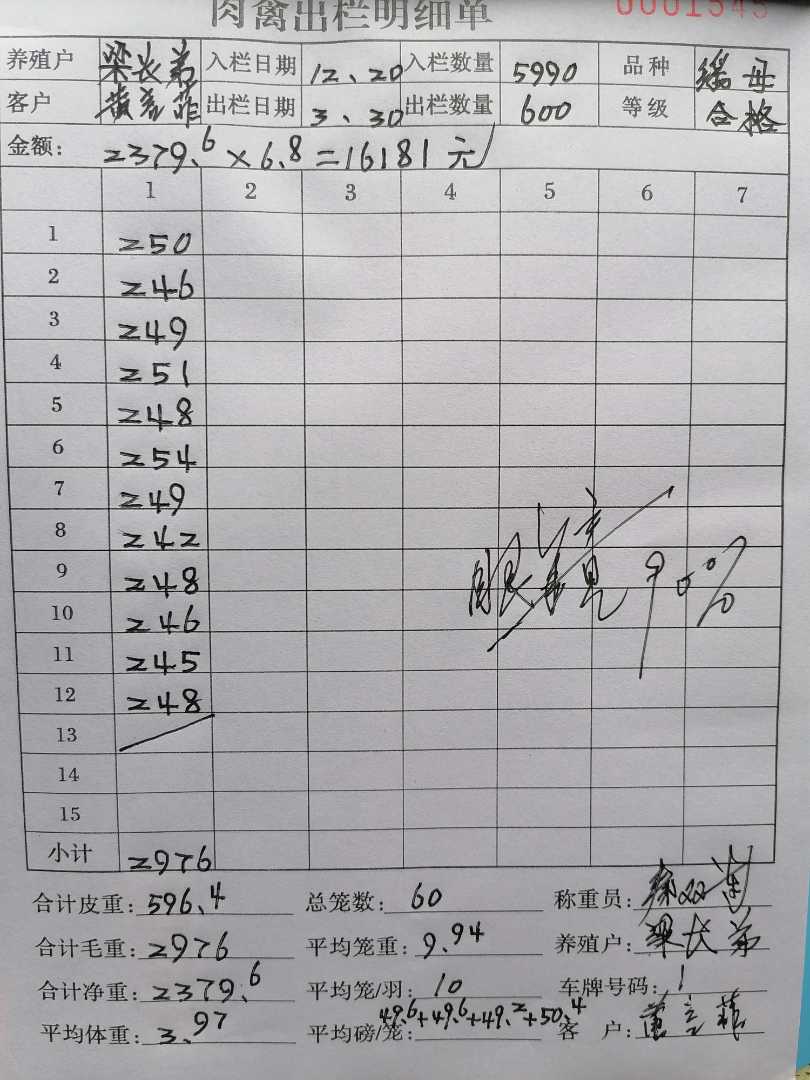 肉禽出栏明细单 0001545
养殖户 梁长弟 入栏日期 12、20 入栏数量 5990 品种 瑶母
客户 黄彦菲 出栏日期 3、30 出栏数量 600 等级 合格
金额: 2379.6×6.8=16181元
1 2 3 4 5 6 7
1 250
2 246
3 249
4 251
5 248
6 254
7 249
8 242
9 248
10 246
11 245
12 248
13
14
15
90%
小计 2976
合计皮重: 596.4 总笼数: 60 称重员:
合计毛重: 2976 平均笼重: 9.94 养殖户: 梁长弟
合计净重: 2379.6 平均笼/羽: 10 车牌号码: 1
平均体重: 3.97 平均磅/笼: 49.6+49.6+49.2+50.4 客 户: